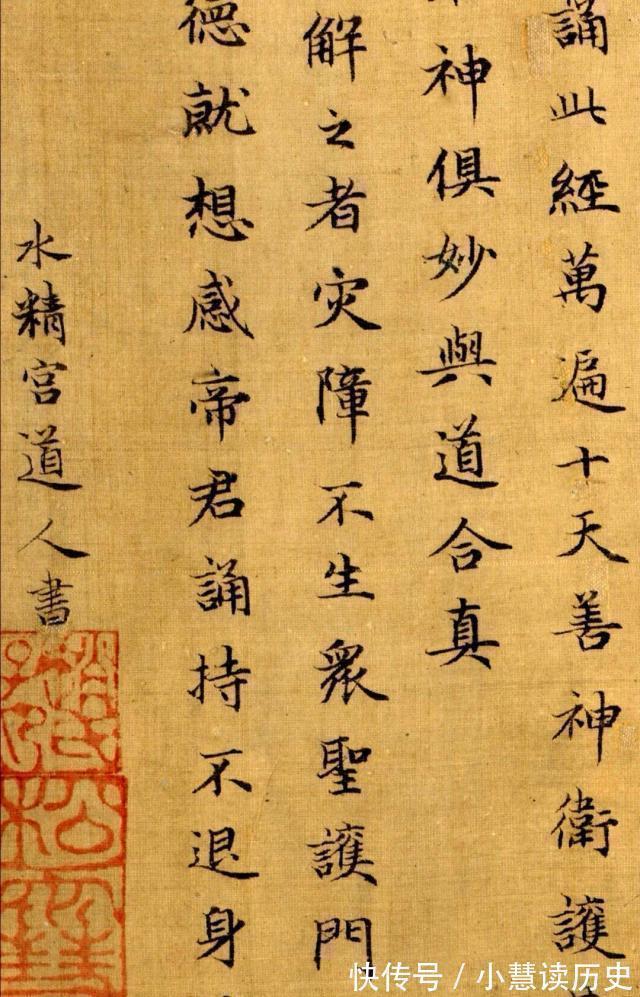 誦此經萬遍十天善神衛護
神俱妙與道合真
解之者灾障不生眾聖護門
德就想感帝君誦持不退身
水精宫道人書
快传号 / 小慧读历史